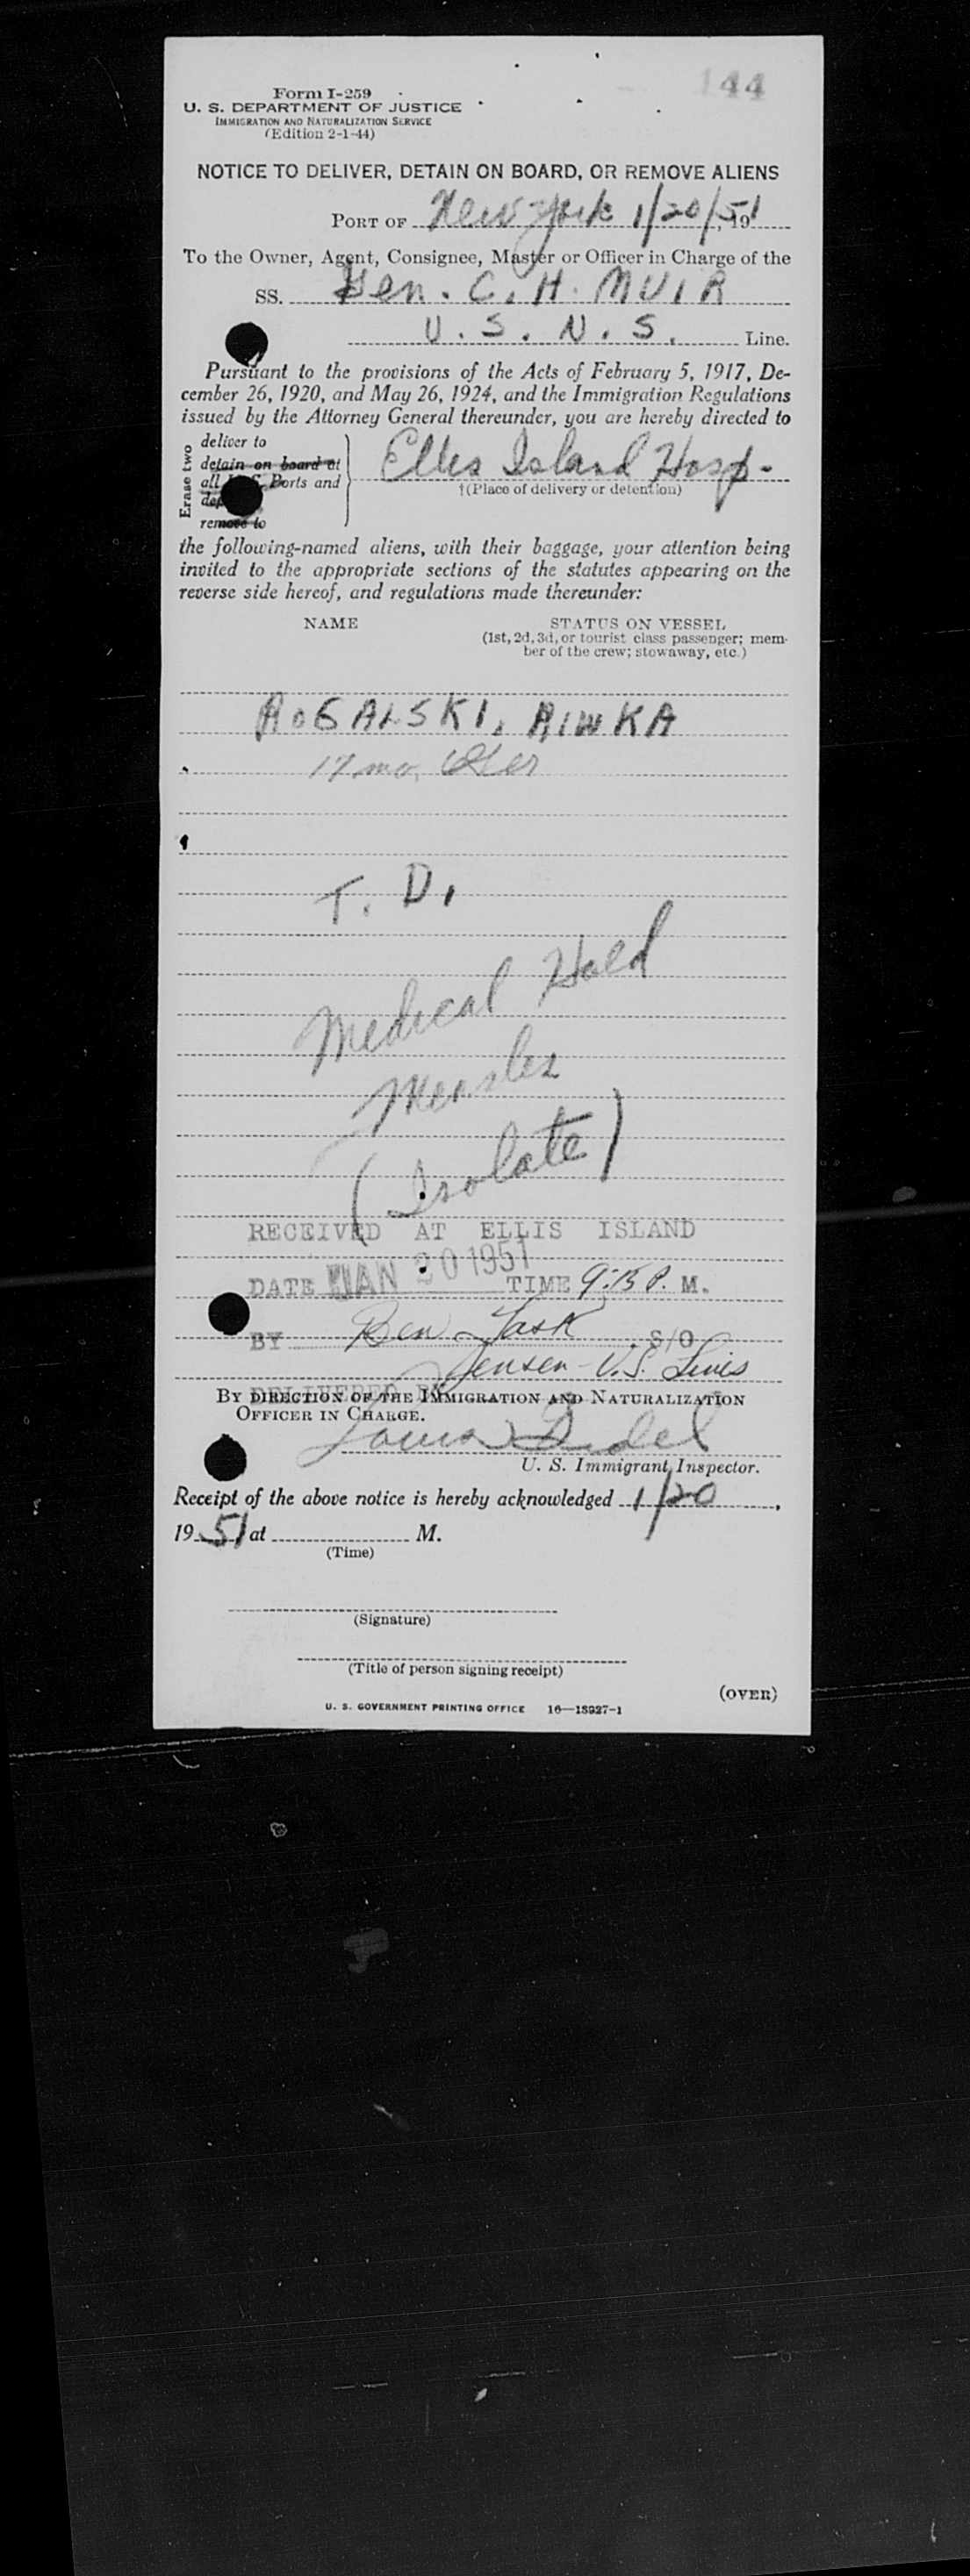 144
Form I-259
U. S. DEPARTMENT OF JUSTICE
IMMIGRATION AND NATURALIZATION SERVICE
(Edition 2-1-44)
NOTICE TO DELIVER, DETAIN ON BOARD, OR REMOVE ALIENS
PORT OF New York 1/20/51, 19
To the Owner, Agent, Consignee, Master or Officer in Charge of the
SS. Gen. C. H. MUIR
U. S. N. S. Line.
Pursuant to the provisions of the Acts of February 5, 1917, De-
cember 26, 1920, and May 26, 1924, and the Immigration Regulations
issued by the Attorney General thereunder, you are hereby directed to
Erase two
deliver to
detain on board at
all U. S. Ports and
remove to
Ellis Island Hosp.
†(Place of delivery or detention)
the following-named aliens, with their baggage, your attention being
invited to the appropriate sections of the statutes appearing on the
reverse side hereof, and regulations made thereunder:
NAME
STATUS ON VESSEL
(1st, 2d, 3d, or tourist class passenger; mem-
ber of the crew; stowaway, etc.)
ROGALSKI, RIWKA
17 mo.
T. D.
Medical Hold
Measles
(Isolate)
RECEIVED AT ELLIS ISLAND
DATE JAN 20 1951 TIME 9:15 P. M.
BY Ben S/O
Jensen - U.S. Lines
DELIVERED BY
BY DIRECTION OF THE IMMIGRATION AND NATURALIZATION
OFFICER IN CHARGE.
Louis
U. S. Immigrant Inspector.
Receipt of the above notice is hereby acknowledged 1/20,
1951 at M.
(Time)
(Signature)
(Title of person signing receipt)
(OVER)
U. S. GOVERNMENT PRINTING OFFICE 16—18927-1